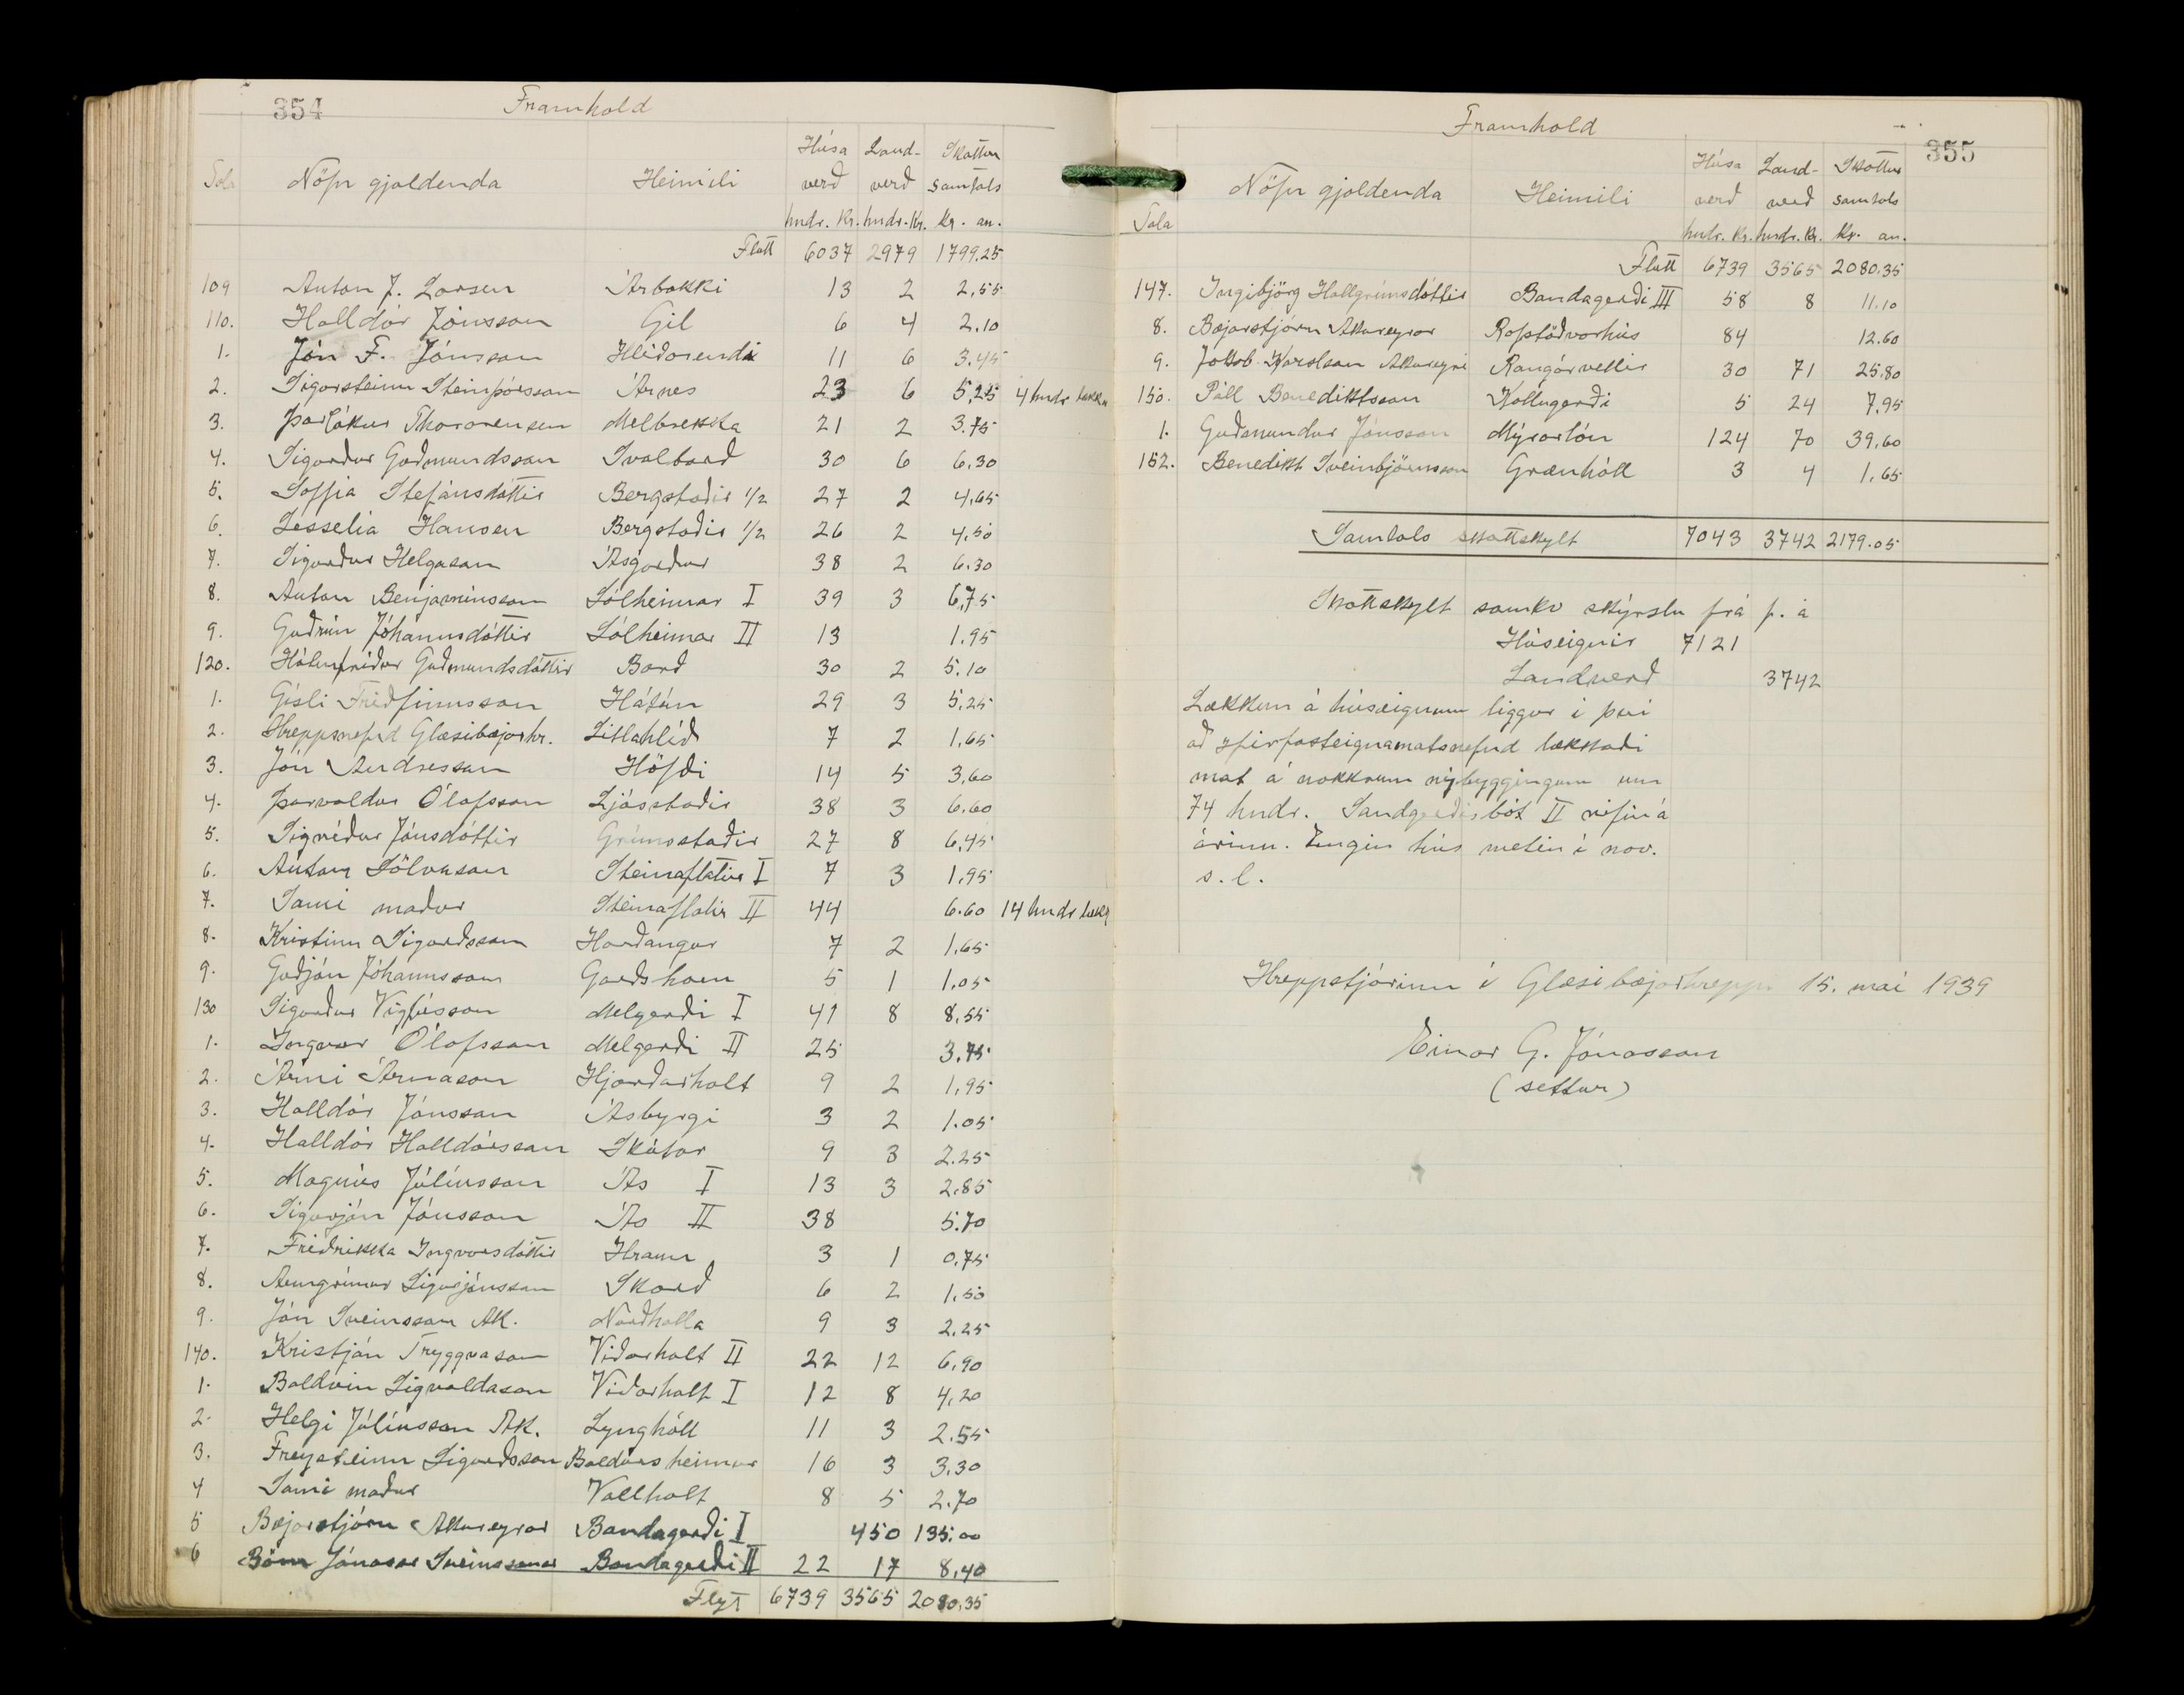 354
Framhald
Tala Nöfn gjaldenda Heimili Húsa verð hndr. Kr. Land- verð hndr. Kr. Skattur samtals kr. an.
Flutt 6037 2979 1799.25
109 Anton J. Larsen Árbakki 13 2 2.55
110. Halldór Jónsson Gil 6 4 2.10
1. Jón F. Jónsson Hlíðarendi 11 6 3.45
2. Sigursteinn Steinþórsson Árnes 23 6 5.25 4 hndr. lækka
3. Þorlákur Thorarensen Melbrekka 21 2 3.75
4. Sigurður Guðmundsson Svalbarð 30 6 6.30
5. Soffia Stefánsdóttir Bergstaðir 1/2 27 2 4.65
6. Lesselia Hansen Bergstaðir 1/2 26 2 4.50
7. Sigurður Helgason Ásgarður 38 2 6.30
8. Anton Benjamínsson Sólheimar I 39 3 6.75
9. Guðrún Jóhannsdóttir Sólheimar II 13 1.95
120. Hólmfríður Guðmundsdóttir Barð 30 2 5.10
1. Gísli Friðfinnsson Hátún 29 3 5.25
2. Hreppsnefnd Glæsibæjarhr. Litlahlíð 7 2 1.65
3. Jón Andrésson Höfði 14 5 3.60
4. Þorvaldur Ólafsson Ljósstaðir 38 3 6.60
5. Sigríður Jónsdóttir Grímsstaðir 27 8 6.45
6. Anton Sölvason Steinaflatir I 7 3 1.95
7. Sami maður Steinaflatir II 44 6.60 14 hndr. lækk
8. Kristinn Sigurðsson Harðangur 7 2 1.65
9. Guðjón Jóhannsson Garðshorn 5 1 1.05
130 Sigurður Vigfússon Melgerði I 41 8 8.55
1. Ingvar Ólafsson Melgerði II 25 3.75
2. Árni Árnason Hjarðarholt 9 2 1.95
3. Halldór Jónsson Ásbyrgi 3 2 1.05
4. Halldór Halldórsson Skútar 9 3 2.25
5. Magnús Júlíusson Ás I 13 3 2.85
6. Sigurjón Jónsson Ás II 38 5.70
7. Friðrikka Ingvarsdóttir Hraun 3 1 0.75
8. Arngrímur Sigurjónsson Skarð 6 2 1.50
9. Jón Sveinsson Ak. Norðhalla 9 3 2.25
140. Kristján Tryggvason Viðarholt II 22 12 6.90
1. Baldvin Sigvaldason Viðarholt I 12 8 4.20
2. Helgi Júlíusson Ak. Lynghóll 11 3 2.55
3. Freysteinn Sigurðsson Baldursheimur 16 3 3.30
4 Sami maður Vallholt 8 5 2.70
5 Bæjarstjórn Akureyrar Bandagerði I 450 135.00
6 Börn Jónasar Sveinssonar Bandagerði II 22 17 8.40
Flyt 6739 3565 2080.35
355
Framhald
Tala Nöfn gjaldenda Heimili Húsa verð hndr. Kr. Land- verð hndr. Kr. Skattur samtals kr. an.
Flutt 6739 3565 2080.35
147. Ingibjörg Hallgrímsdóttir Bandagerði III 58 8 11.10
8. Bæjarstjórn Akureyrar Rafstöðvarhús 84 12.60
9. Jakob Karlsson Akureyri Rangárvellir 30 71 25.80
150. Páll Benediktsson Kollugerði 5 24 7.95
1. Guðmundur Jónsson Mýrarlón 124 70 39.60
152. Benedikt Sveinbjörnsson Grænhóll 3 4 1.65
Samtals skattskylt 7043 3742 2179.05
Skattskylt samkv skýrslu frá f. á
Húseignir 7121
Landverð 3742
Lækkun á húseignum liggur í því
að yfirfasteignamatsnefnd lækkaði
mat á nokkrum nýbyggingum um
74 hndr. Sandgerðisbót II rifin á
árinu. Engin hús metin í nov.
s. l.
Hreppstjórinn í Glæsibæjarhreppi 15. maí 1939
Einar G. Jónasson
(settur)